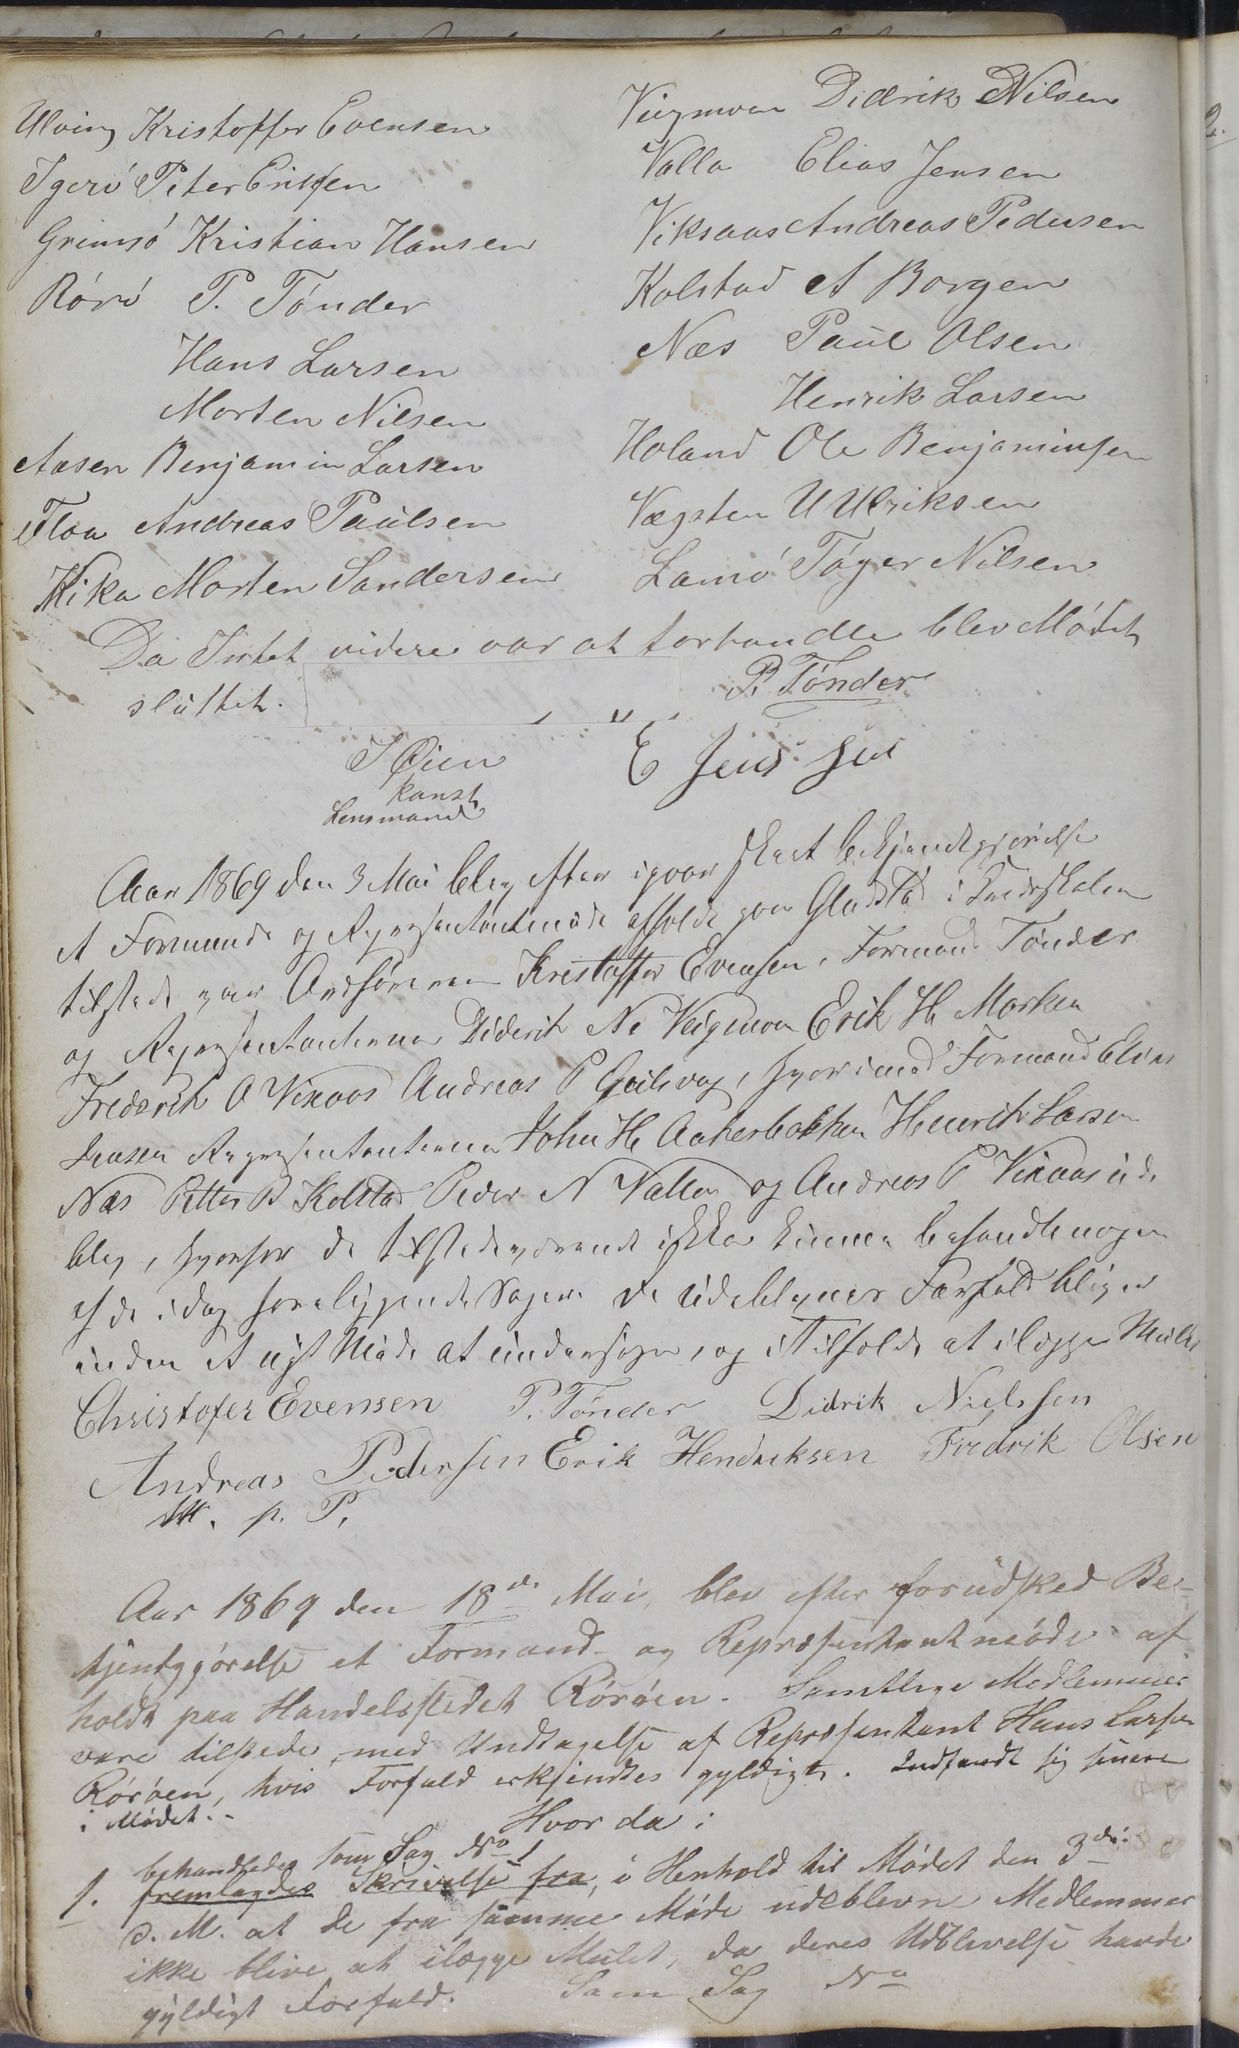 Ulving Kristoffer Evensen
Igerö Peter Eriksen
Grimsö Kristian Hansen
Rörö P. Tønder
Hans Larsen
Morten Nilsen
Aasen Benjamin Larsen
Floa Andreas Paulsen
Kika Morten Sandersen
Viegmoen Didrik Nilsen
Valla Elias Jensen
Viksaas Andreas Pedersen
Kolstad A Borgen
Næs Paul Olsen
Henrik Larsen
Holand Ole Benjaminsen
Vægsten U Ulriksen
Lamö Töger Nilsen
Da Intet videre var at forhandle blev Mödet
sluttet.
P. Tønder
I Øien
konst
Lensmand
E Jens
Aar 1869 den 3 Mai blev efter igvor skeet bekjendtgjörelse
et Formands og Repræsentantmöde afholdt paa Gladstad i
tilstede var Ordföreren Kristoffer Evensen, Formand Tönder
og Repræsentanterne Diderik N. Veigmoen Erik H Morken
Frederik O Vixaas Andreas P Geilvog, hvorimod Formand Elias
Jensen Repræsentanterne John H Aakerbakken Henrik Larsen
Næs Petter B Kolstad Peder N Valla og Andreas P Vixaas ude
blev, hvorfor de tilstedeværende ikke kunne behandle nogen
af de idag foreliggende Sager. De Udeblevnes Forfald bliver
inden et nyt Möde at undersöge, og i Tilfelde at ilegge Mulkt
Christofer Evensen P. Tønder Didrik Nielssen
Andreas Pedersen Erik Hendriksen Fredrik Olsen
M. p. P.
Aar 1869 den 18de Mai, blev efter forudsked Be-
kjentggörelse et Formand- og Repræsentantmöde af-
holdt paa Handelsstedet Röröen. Samtlige Medlemmer
vare tilstede, med Undtagelse af Repræsentant Hans Larsen
Röröen, hvis Forfald erkjendtes gyldigt. Indfandt sig senere
i Mödet.-
Hvor da:
behandledes som Sag No 1
1. fremlagdes Skrivelse fra, i Henhold til Mödet den 3die
d. M. at de fra samme Möde udeblevne Medlemmer
ikke blive at ilægge Mulct, da deres Udblivelse havde
gyldigt Forfald. Som Sag No